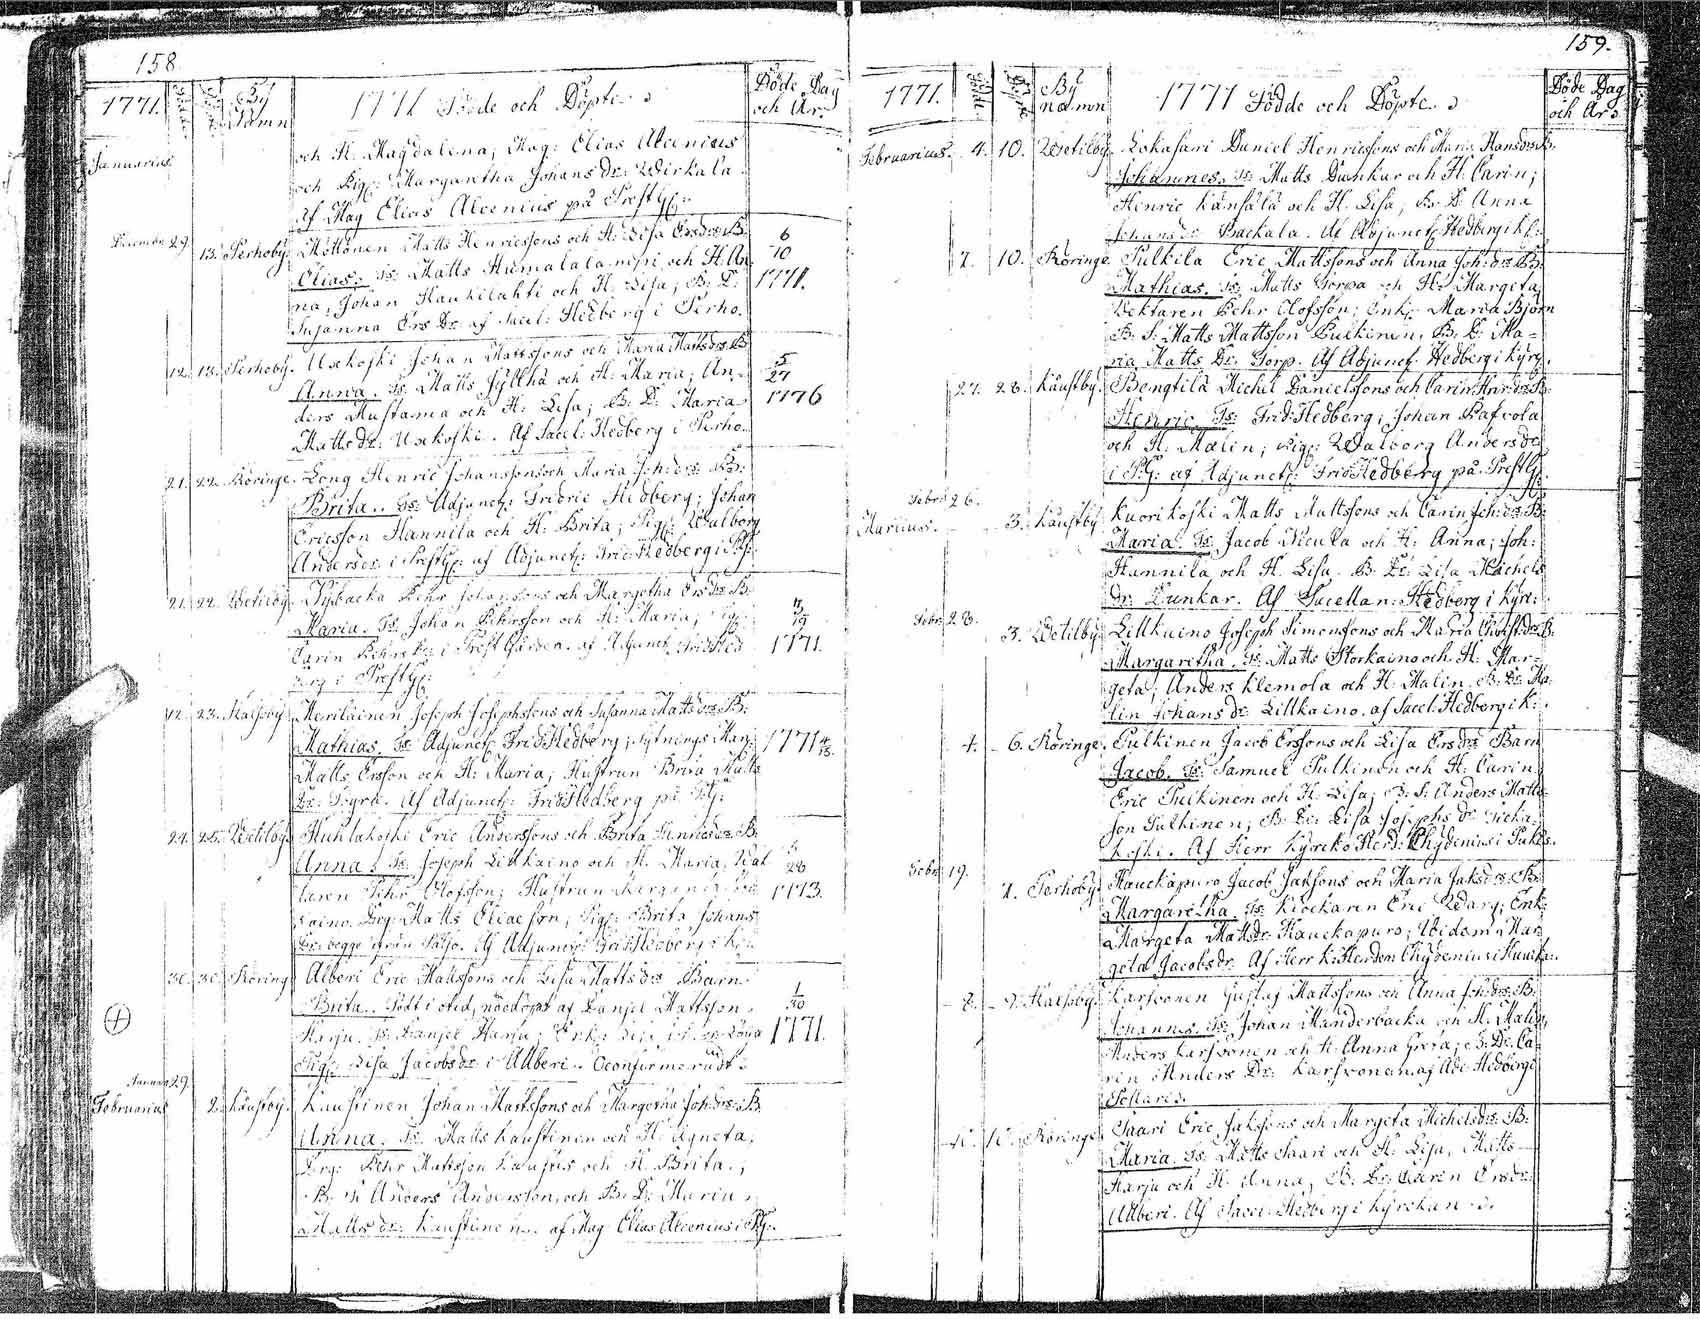 158
1771. Födde Döpte By Namn 1771 Födde och Döpte Döde Dag och År.
Januarius
och H. Magdalena; Mag: Elias Alcenius
och Pig: Margaretha Johans dr: Wirkala
Af Mag Elias Alcenius på Prestg:
Decembr 29. 13. Perhoby. Möttönen Matts Henricssons och H. Lisa Ersdrs B: 6
Elias. Ts: Matts Humalalaniemi och H. An 10
na, Johan Haukilahti och H. Lisa; B. D: 1771.
Susanna Ers Dr: af Sacel: Hedberg i Perho.
12. 13. Perhoby. Usekoski Johan Mattssons och Maria Mattsdrs B 5
Anna. Ts: Matts Jyllhä och H. Maria; An, 27
ders Mustama och H. Lisa; B. D: Maria 1776
Matts dr: Usekoski. Af Sacel: Hedberg i Perho.
21. 22. Röringe. Long Henric Johanssons och Maria Joh: drs B:
Brita. Ts: Adjunct: Fridric Hedberg; Johan
Ericsson Hannila och H. Brita; Pig: Walborg
Anders dr: i Prestg: af Adjunct: Frid: Hedberg i Pg:
21. 22. Wetilby. Nybacka Pehr Johanssons och Margetha Ersdrs B:
Maria. Ts: Johan Pehrsson och H. Maria;
Carin Pehrs dr: i Prest Gården. af Adjunct Frid: Hed 19
berg i Prestg: 1771.
12. 23. Halsoby. Meriläinen Joseph Josephssons och Susanna Mattsdrs B:
Mathias. Ts: Adjunct Frid: Hedberg; Sytnings Man: 1771 4/18.
Matts Ersson och H. Maria; Hustrun Brita Matts
Dr: Af Adjunct: Frid: Hedberg på Pg:
24. 25. Wetilby. Huhtakoski Eric Anderssons och Brita Henricsdrs B:
Anna. Ts: Joseph Lillkaino och H. Maria; Wäk 28
taren Pehr Olofsson; Hustrun 1773.
kaino. Drg: Matts Eliae son; Pig: Brita Johans
Dr: begge från Af Adjunct: Frid: Hedberg i K:
30. 30. Röring Alberi Eric Mattssons och Lisa Matts drs Barn
Brita. Född i otid, nöddöpt af Danjel Mattsson 1
Harju. Ts: Danjel Harju; Enk: 30
Pig: Lisa Jacobsdr i Allberi. Oconfirmerad. 1771.
Januar 29.
Februarius 2. Kaustby. Kaustinen Johan Mattssons och Margetha Joh: drs: B
Anna. Ts: Matts Kaustinen och H. Agneta;
Drg: Pehr Mattsson Kaustis och H. Brita.;
B. S: Anders Andersson, och B. D: Maria
Matts dr: Kaustinen. af Mag Elias Alcenius i Pg:
159.
1771. Födde Döpte By namn 1771 Födde och Döpte Döde Dag och År
Februarius. 4. 10. Wetilby. Lokasari Daniel Henricssons och Maria Hansdrs B:
Johannes. Ts: Matts Dunkar och H: Carin;
Henric Känsälä och H. Lisa; B. D: Anna
Johans dr: Backala. Af Adjunct: Hedberg i K:
7. 10. Röringe Pulkila Eric Mattssons och Anna Joh: drs B:
Mathias. Ts: Matts Torpa och H. Margeta;
Wecktaren Pehr Olofsson; Enk: Maria Björn
B. S: Matts Mattsson Pulkinen, B. D: Ma=
ria Matts Dr: Torp. Af Adjunct Hedberg i Kyrk.
27. 28. Kaustby. Bengtila Michel Danielssons och Carin Hin: drs B:
Henric. Ts: Frid: Hedberg; Johan Pafvola
och H. Malin; Pig: Walborg Anders dr:
i Pg: af Adjunct: Frid: Hedberg på Prestg:
Febr. 26.
Martius. 3. Kaustby. Kuorikoski Matts Mattssons och Carin Joh: drs B:
Maria. Ts: Jacob Wiculla och H. Anna; Joh:
Hannila och H. Lisa. B. D: Lisa Michels
dr: Dunkar. Af Sacellan: Hedberg i Kyrk:
Febr. 28. 3. Wetilby. Lillkaino Joseph Simonssons och Maria Christ: drs B:
Margaretha. Ts: Matts Storkaino och H. Mar=
geta; Anders Klemola och H. Malin, B: D: Ma=
lin Johans dr: Lillkaino. af Sacel: Hedberg i K:
4. 6. Röringe. Pulkinen Jacob Erssons och Lisa Ersdrs Barn
Jacob. Ts: Samuel Pulkinen och H. Carin
Eric Pulkinen och H. Lisa; B. S: Anders Matts
son Pulkinen; B. D: Lisa Josephs dr:
koski. Af Herr Kyrckio Herd: Chydenius i Pulkis.
Febr. 19. 7. Perhoby. Hauckapuro Jacob Jakssons och Maria Jaksdrs B:
Margaretha. Ts: Klockaren Eric Warg; Enk:
Margeta Mattsdr: Hauckapuro; Widem Mar
geta Jacobs dr: Af Herr K: Herden Chydenius i
8. 9. Halsoby. Karfvonen Gustaf Mattssons och Anna Joh: drs B:
Johannes. Ts: Johan Månderbacka och H. Malin,
Anders Karfvonen och H. Anna Greta; B: D: Ca=
rin Anders Dr: Karfvonen af Adj: Hedberg i
10. 10. Röringe Saari Eric Jakssons och Margeta Michelsdrs B:
Maria. Ts: Matts Saari och H. Lisa, Matts
Harju och H. Anna, B. D: Carin Ersdr:
Allberi. Af Sacel: Hedberg i Kyrckan.